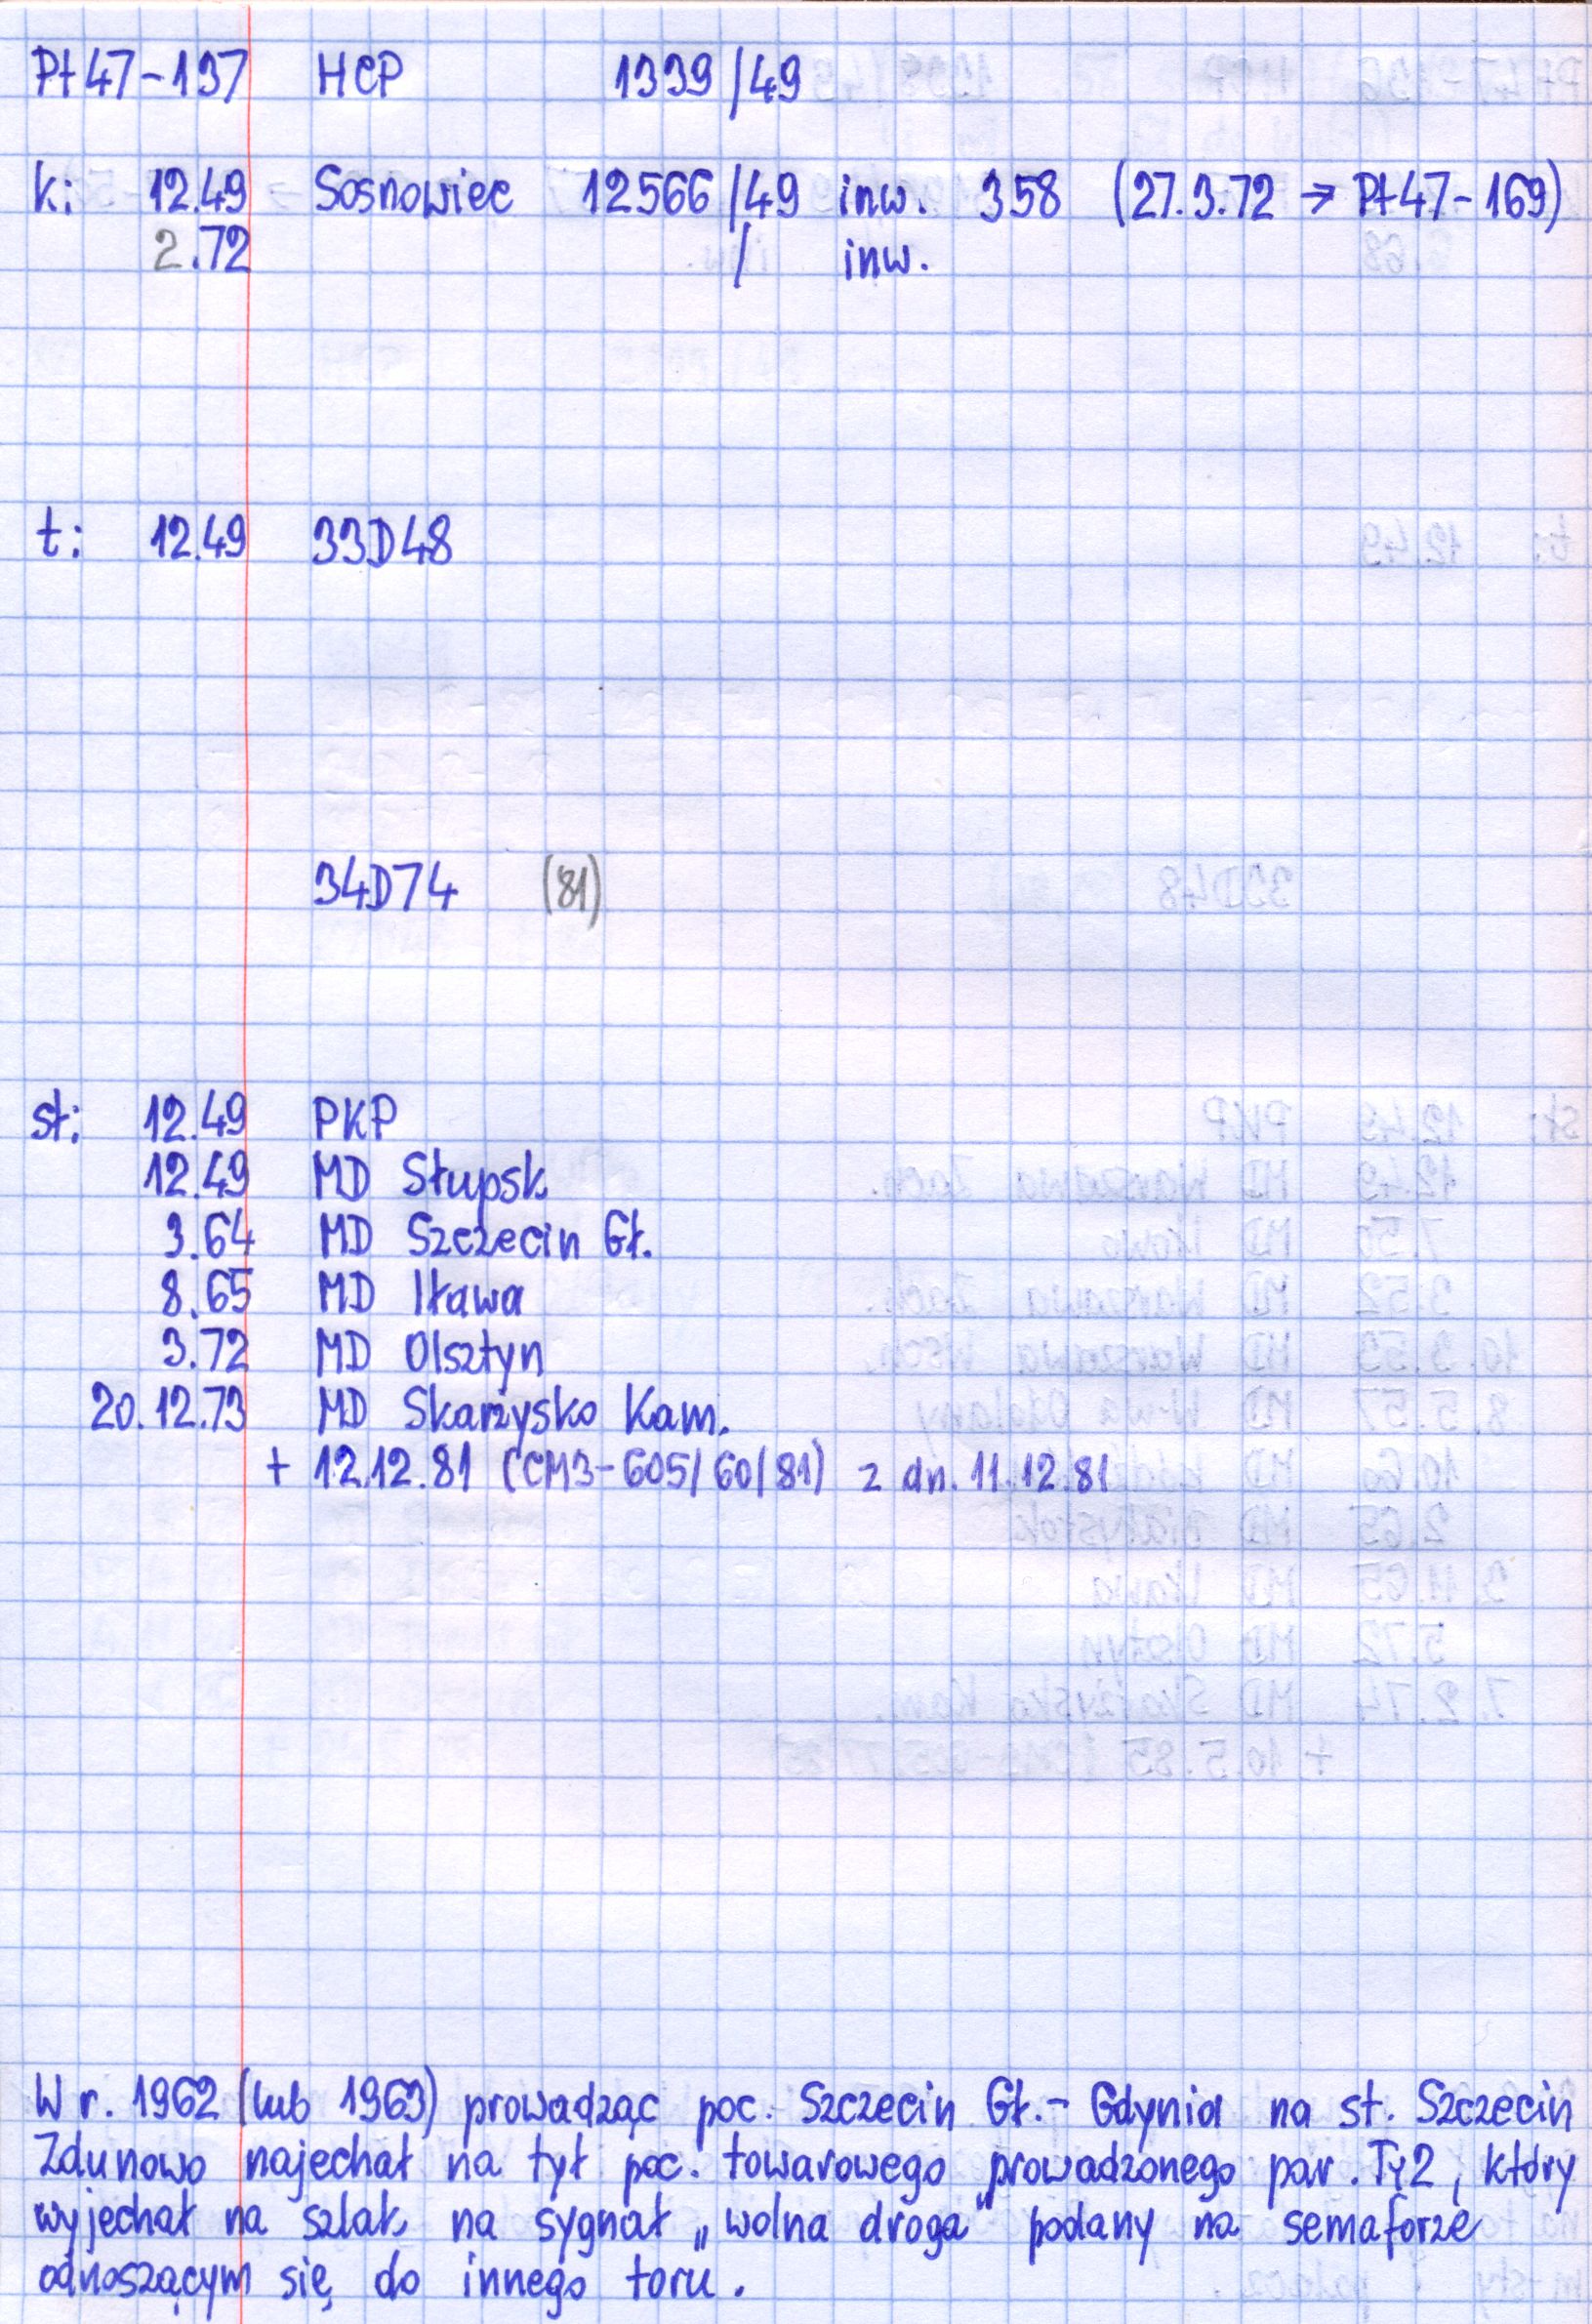 Pt47-137 HCP 1339/49
k: 12.49 Sosnowiec 12566/49 inw. 358 (27.3.72 → Pt47-169)
2.72 / inw.
t: 12.49 33D48
34D74 (81)
st: 12.49 PKP
12.49 MD Słupsk
3.64 MD Szczecin Gł.
8.65 MD Iława
3.72 MD Olsztyn
20.12.73 MD Skarżysko Kam.
+ 12.12.81 (CM3-605/60/81) z dn. 11.12.81
W r. 1962 (lub 1963) prowadząc poc. Szczecin Gł.- Gdynia na st. Szczecin
Zdunowo najechał na tył poc. towarowego prowadzonego par. Ty2, który
wyjechał na szlak na sygnał „wolna droga" podany na semaforze
odnoszącym się do innego toru.